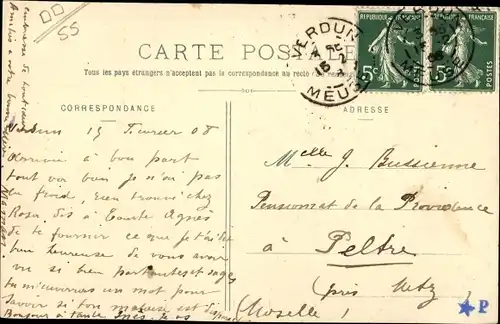 55
CARTE POSTALE
Tous les pays étrangers n'acceptent pas la correspondance au recto
RÉPUBLIQUE FRANÇAISE
5c
POSTES
RÉPUBLIQUE FRANÇAISE
5c
POSTES
VERDUN
MEUSE
CORRESPONDANCE
ADRESSE
Verdun 15 Février 08
Arrivée à bon port
tout va bien je n'ai pas
eu froid, rien trouvé chez
Rosa, dis à tante Agnès
de te fournir ce que je t'ai
heureuse de vous avoir
vu si bien portantes et sages
tu m'écriras un mot pour
savoir si ton
Bonjour à tante
Melle J. Bussienne
Pensionnat de la Providence
à Peltre
(près Metz)
(Moselle)
P